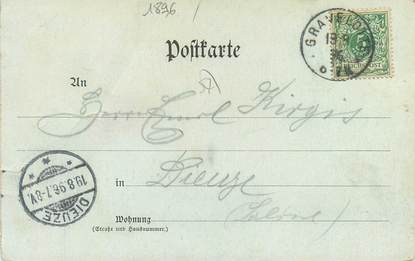 1896
Postkarte
GRAVELOTTE
An
Herrn Emil Kirgis
in Dieuze
DIEUZE
19.8.96.7-8V.
Wohnung
(Straße und Hausnummer)